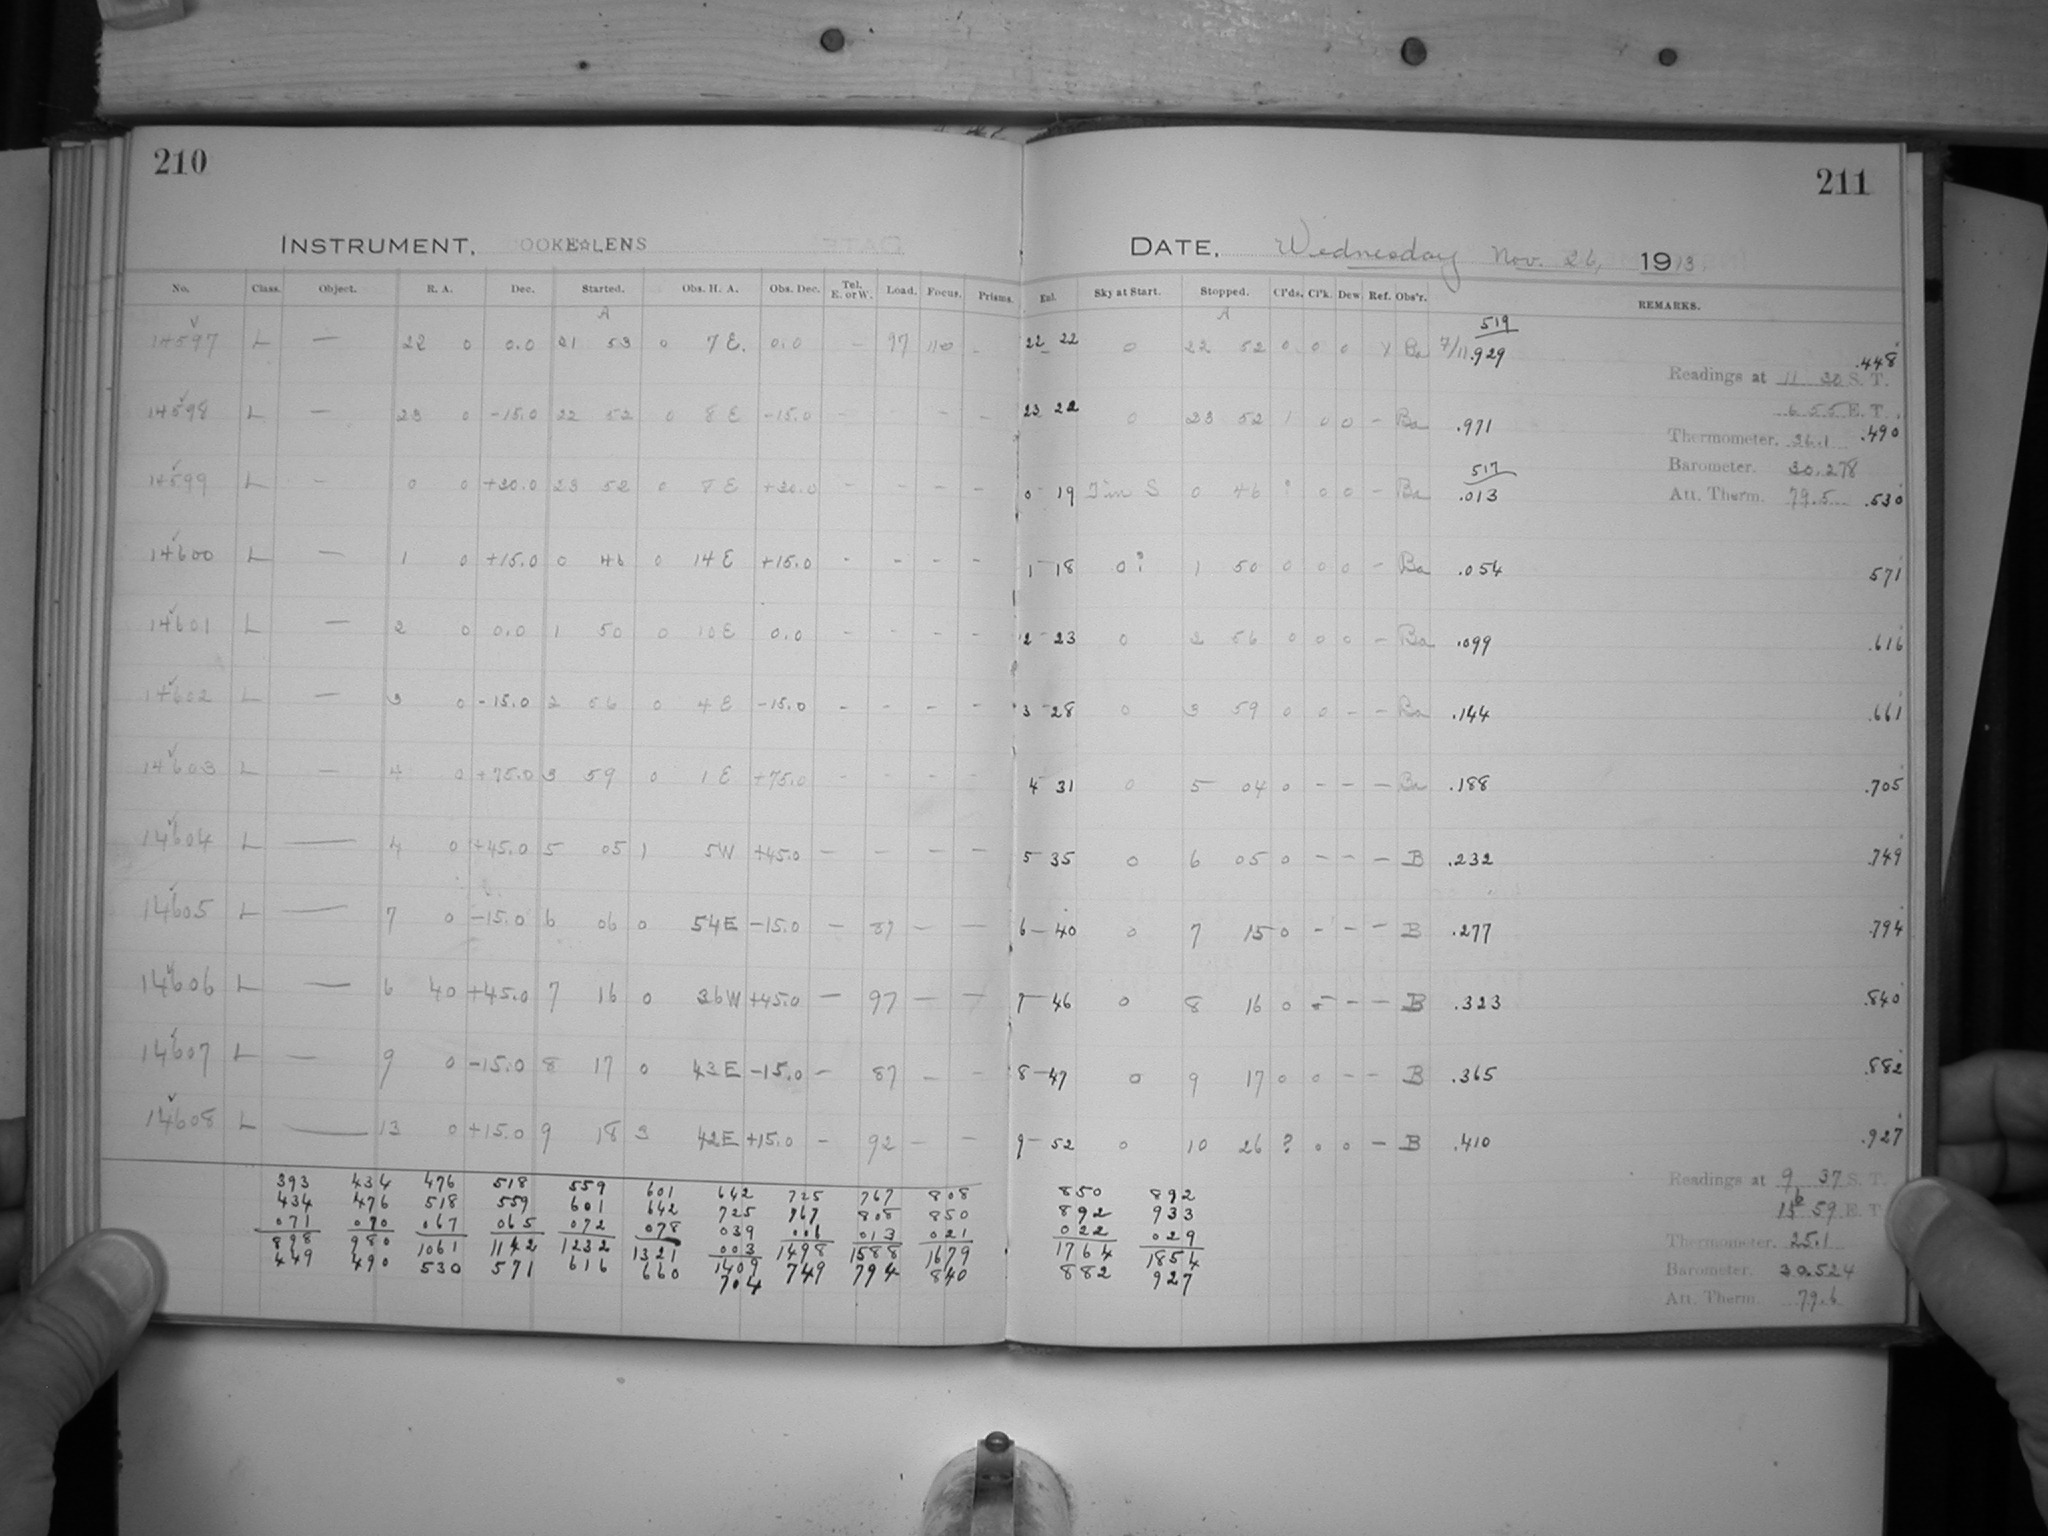 210
211
INSTRUMENT, OOKE☆LENS
DATE, Wednesday Nov. 26, 1913
No. Class. Object. R. A. Dec. Started. Obs. H. A. Obs. Dec. Tel. E. or W. Load. Focus. Prisms. Ext. Sky at Start. Stopped. Cl'ds. Cl'k. Dew Ref. Obs'r. REMARKS.
A A 519
14597 L — 22 0 0.0 21 53 0 7 E. 0.0 - 97 110 - 22 22 0 22 52 0 0 0 Y Ba 7/11.929 .448
Readings at 11 30 S. T.
6 55 E. T.
14598 L — 23 0 -15.0 22 52 0 8 E -15.0 - - - 23 22 0 23 52 1 0 0 - Ba .971 .490
Thermometer. 36.1
Barometer. 30.278
517
14599 L - 0 0 +30.0 23 52 0 8 E +30.0 - - - - 0 19 0 46 ? 0 0 - Ba .013 .530
Att. Therm. 79.5
14600 L — 1 0 +15.0 0 46 0 14 E +15.0 - - - - 1 18 0? 1 50 0 0 0 - Ba .054 571
14601 L — 2 0 0.0 1 50 0 10 E 0.0 - - - - 2 23 0 2 56 0 0 0 - Ba .099 .616
14602 L — 3 0 -15.0 2 56 0 4 E -15.0 - - - - 3 28 0 3 59 0 0 - - Ba .144 .661
14603 L — 4 0 +75.0 3 59 0 1 E +75.0 - - - - 4 31 0 5 04 0 - - - Ba .188 .705
14604 L — 4 0 +45.0 5 05 1 5W +45.0 - - - - 5 35 0 6 05 0 - - - B .232 .749
14605 L — 7 0 -15.0 6 06 0 54E -15.0 - 87 - - 6 40 0 7 15 0 - - - B .277 .794
14606 L — 6 40 +45.0 7 16 0 36W +45.0 - 97 - - 7 46 0 8 16 0 - - - B .323 .840
14607 L — 9 0 -15.0 8 17 0 43E -15.0 - 87 - - 8 47 0 9 17 0 0 - - B .365 .882
14608 L — 13 0 +15.0 9 18 3 42E +15.0 - 92 - - 9 52 0 10 26 ? 0 0 - B .410 .927
393 434 476 518 559 601 642 725 767 808 850 892
434 476 518 559 601 642 725 767 808 850 892 933
071 070 067 065 072 078 039 006 013 021 022 029
003
898 980 1061 1142 1232 1321 1409 1498 1588 1679 1764 1854
449 490 530 571 616 660 704 749 794 840 882 927
Readings at 9 37 S. T.
59 E. T.
Thermometer. 25.1
Barometer. 30.524
Att. Therm. 79.6